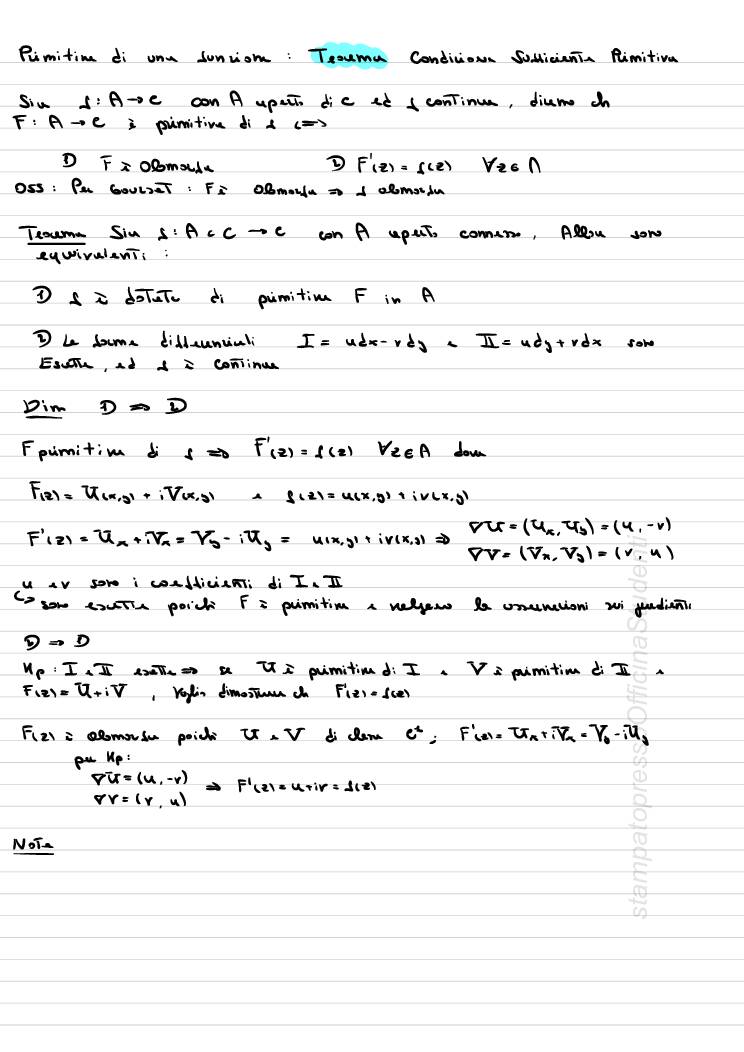 Primitiva di una funzione : Teorema Condizione Sufficiente Primitiva
Sia f : A → C con A aperto di C ed f continua, diremo ch
F : A → C è primitiva di f <=>
1) F è Olomorfa 2) F'(z) = f(z) ∀z ∈ A
OSS : Per Goursat : F è Olomorfa ⇒ f olomorfa
Teorema Sia f : A ⊂ C → C con A aperto connesso, Allora sono
equivalenti :
1) f è dotata di primitiva F in A
2) Le forme differenziali I = udx - vdy e II = udy + vdx sono
Esatte, ed f è continua
Dim 1) ⇒ 2)
F primitiva di f ⇒ F'(z) = f(z) ∀z ∈ A dove
F(z) = U(x,y) + iV(x,y) e f(z) = u(x,y) + iv(x,y)
F'(z) = Ux + iVx = Vy - iUy = u(x,y) + iv(x,y) ⇒ ∇U = (Ux, Uy) = (u, -v)
∇V = (Vx, Vy) = (v, u)
u e v sono i coefficienti di I e II
↳ sono esatte poichè F è primitiva e valgono le osservazioni sui gradienti
2) ⇒ 1)
Hp : I e II esatte ⇒ se U è primitiva di I e V è primitiva di II e
F(z) = U + iV , voglio dimostrare ch F'(z) = f(z)
F(z) è olomorfa poichè U e V di classe C¹ ; F'(z) = Ux + iVx = Vy - iUy
per Hp :
∇U = (u, -v)
∇V = (v, u) ⇒ F'(z) = u + iv = f(z)
Note
stampatopressoOfficinaStudenti